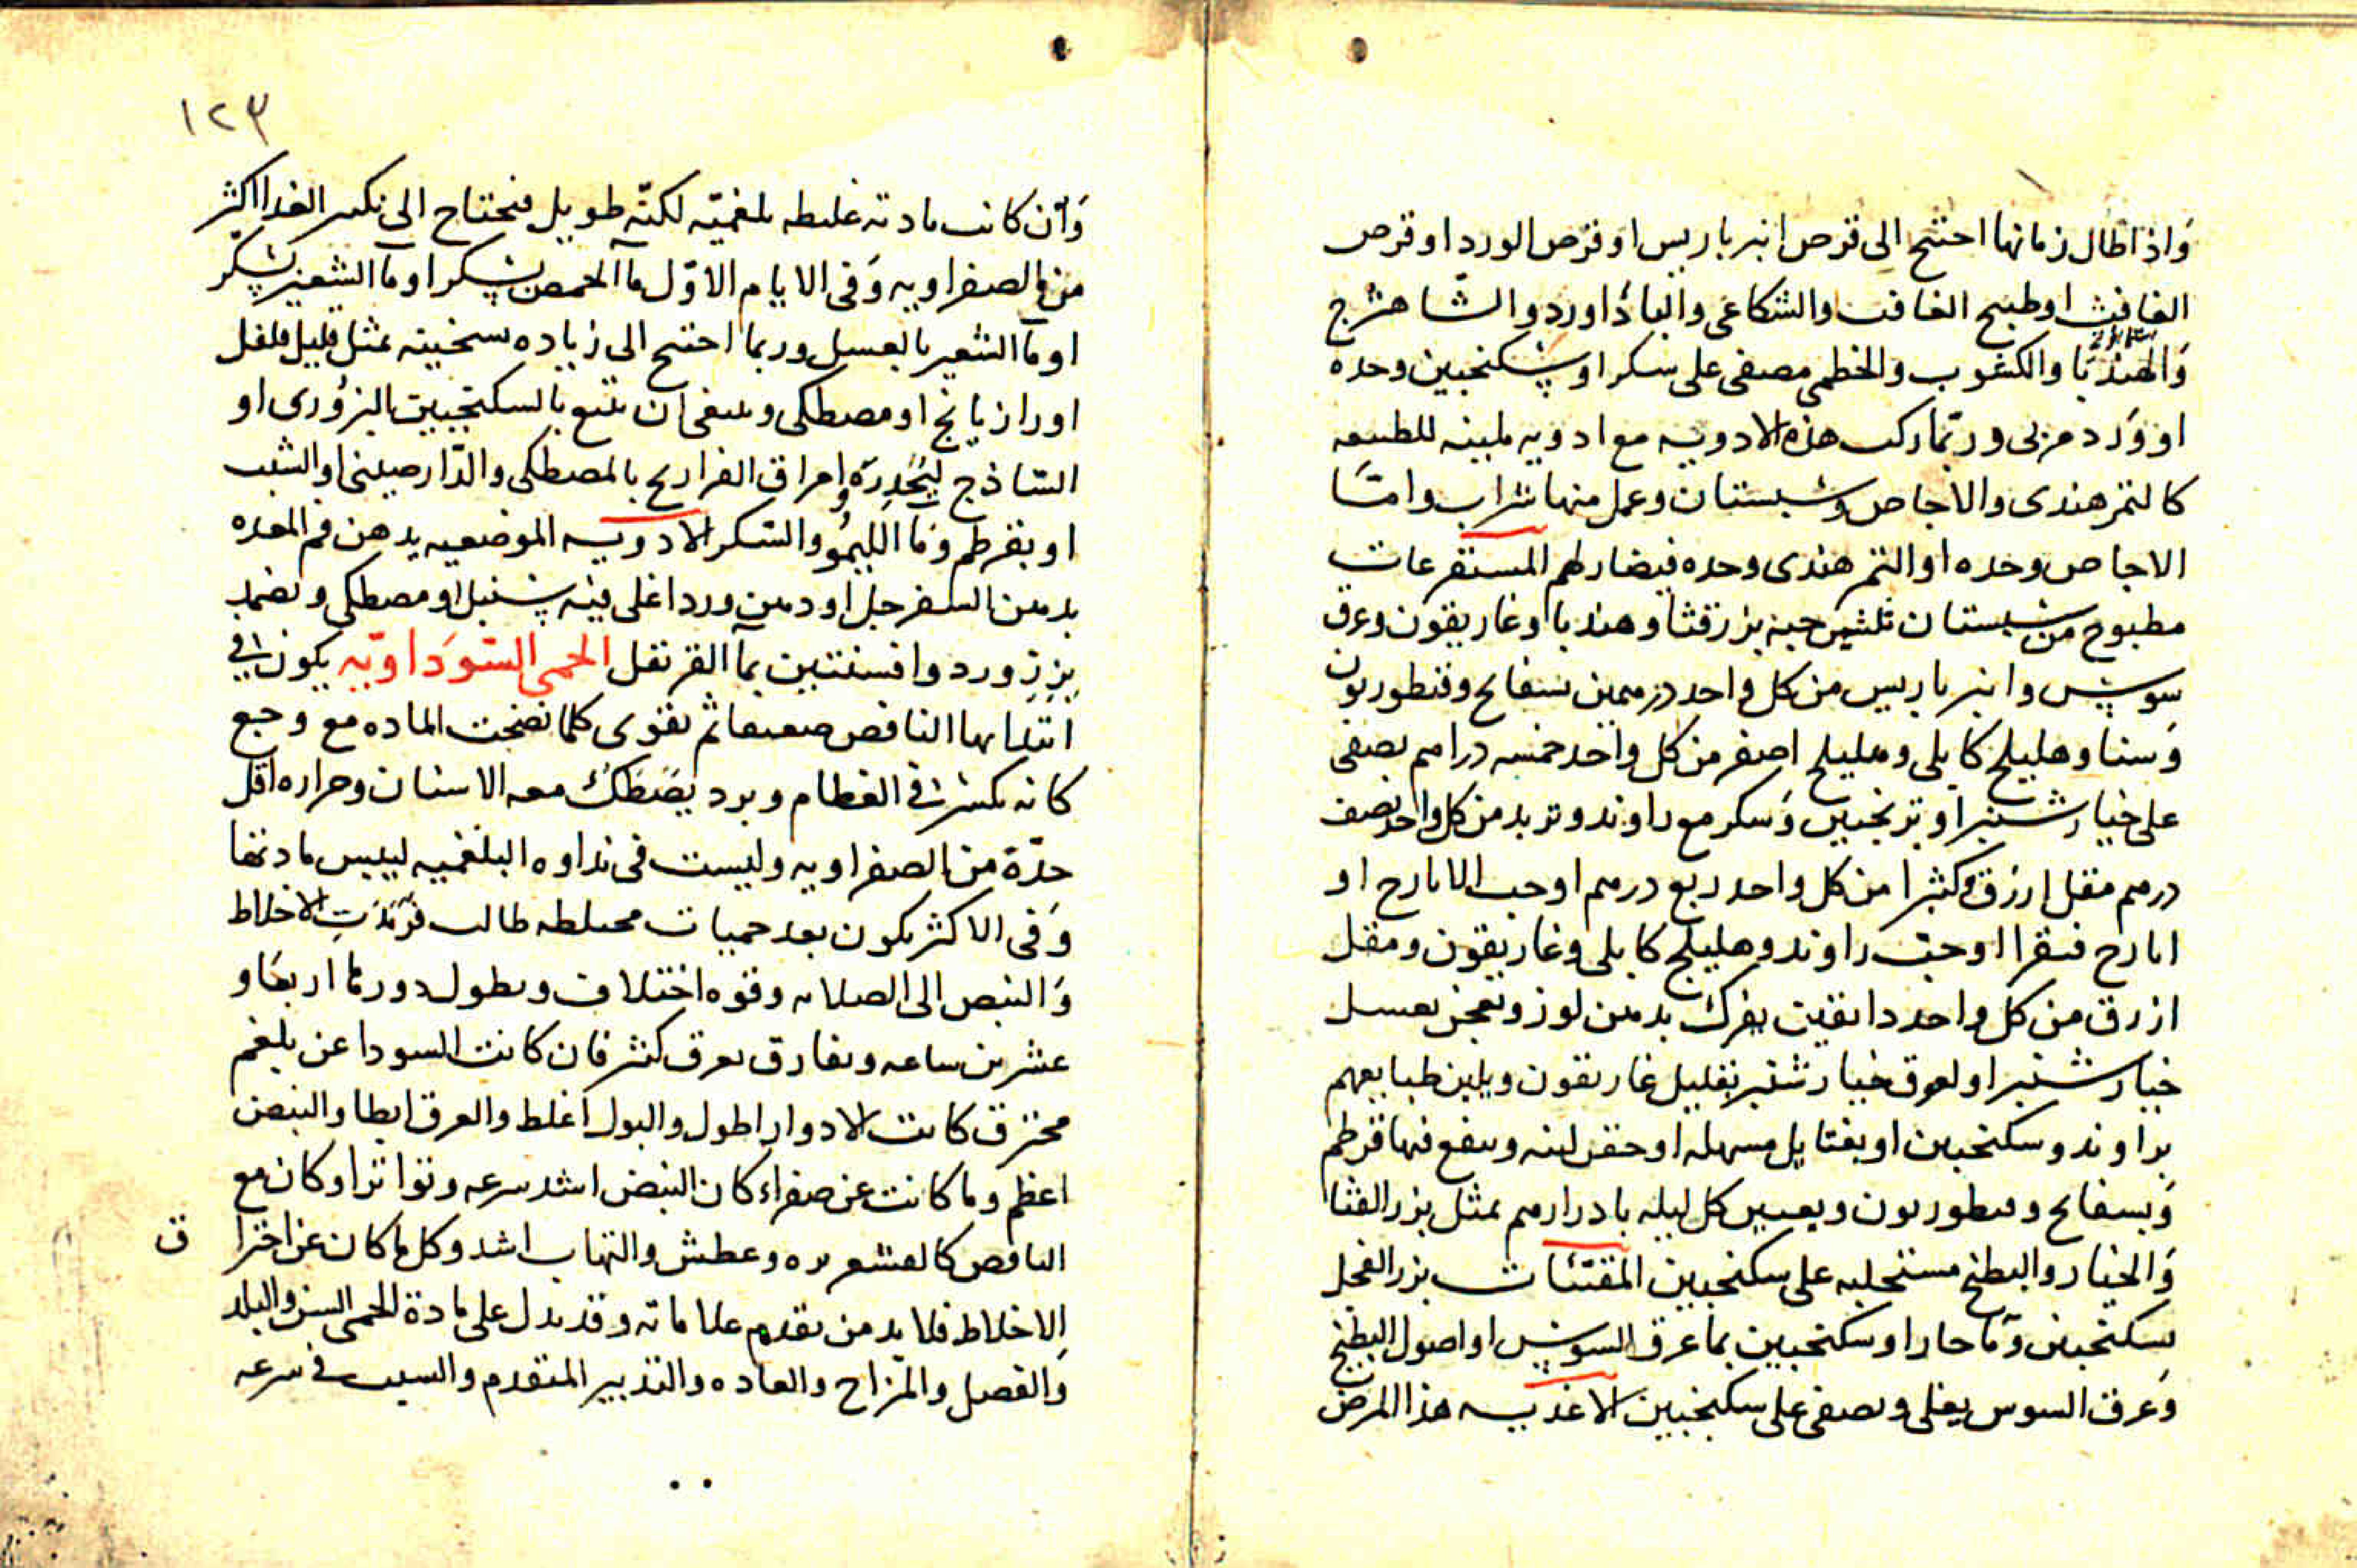 وَاذا طال زمانها احتيج الى قرص انبرباريس او قرص الورد او قرص
الغافث او طبيخ الغافت والشكاعى والباداورد والشاهترج
وَالهندبا والكشوب والخطمى مصفى على سكر او سكنجبين وحده
او وَرد مربى وربما ركب هذه الادويه مع ادويه ملينه للطبيعه
كالتمر هندى والاجاص وسبستان وعمل منها شراب وامّا
الاجاص وحده او التمر هندى وحده فيضارهم المستفرغات
مطبوخ من سبستان ثلثين حبه بزر قثا وهندبا وغاريقون وعرق
سوس وانبرباريس من كل واحد درهمين بسفايج وقنطوريون
وَسنا وهليلج كابلى وهليلج اصفر من كل واحد خمسه دراهم يصفى
على خيار شنبر او ترنجبين وَسكر مع راوند وتربد من كل واحد نصف
درهم مقل ازرق وكثيرا من كل واحد ربع درهم او حب الايارج او
ايارج فيقرا او حب راوند وهليلج كابلى وغاريقون ومقل
ازرق من كل واحد دانقين يفرك بدهن لوز ويعجن بعسل
خيار شنبر او لعوق خيار شنبر بقليل غاريقون ويلين طبايعهم
براوند وسكنجبين او بفتايل مسهله او حقن لينه وينفع فيها قرطم
وَبسفايج وقنطوريون ويعيين كل ليله بادرارهم بمثل بزر القثا
وَالخيار والبطيخ مستحلبه على سكنجبين المقيئات بزر الفجل
سكنجبين وَما حار او سكنجبين بما عرق السوس او اصول البطيخ
وَعرق السوس يغلى ويصفى على سكنجبين الاغذيه هذا المرض
١٢٣
وَان كانت مادته غليطه بلغميّه لكنّه طويل فيحتاج الى تكثير الغدا اكثر
من الصفراويه وَفى الايام الاوّل ماء الحمص بسكر او ماء الشعير بسكّر
او ماء الشعير بالعسل وربما احتيج الى زياده سخينه بمثل قليل فلفل
او رازيانج او مصطكى وينبغى ان يتبع بالسكنجبين البزورى او
السّاذج ليُحَدِرَه وامراق الفراريج بالمصطكى والدّارصينى او الشبت
او بقرطم وَماء الليمُو والسّكر الادويه الموضعيه يدهن فم المعده
بدهن السفرجل او دهن ورد اغلى فيه سنبل او مصطكى ويضمد
بزرّ ورد وافسنتين بماء القرنفل الحمى السّوَداويّه يكون فى
ابتدايها النافض ضعيفا ثم يقوى كلما نضجت الماده مع وجع
كانه يكسر فى العظام وبرد يصَطكُ معه الاسنان وحراره اقل
حدّة من الصفراويه وليست فى نداوه البلغميه ليبس مادتها
وَفى الاكثر يكون بعد حميات مختلطه طالت فرّمدَتِ الاخلاط
وَالنبض الى الصلابه وقوه اختلاف ويطول دورها اربعَا و
عشرين ساعه ويفارق بعرق كثير فان كانت السودا عن بلغم
محترق كانت الادوار اطول والبول اغلط والعرق ابطا والنبض
اعظم وما كانت عن صفراء كان النبض اشد سرعه وتواترا وكان مع
النافض كالقشعريره وعطش والتهاب اشد وكل ما كان عن احترا ق
الاخلاط فلا بد من تقدم علاماته وقد يدل على مادة الحمى السن والبلد
وَالفصل والمزاج والعاده والتدبير المتقدم والسبب فى سرعه